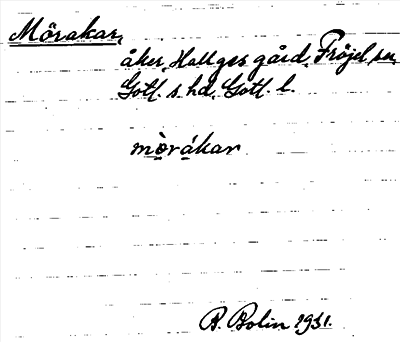 Mörakar,
åker, Hallges gård, Fröjel sn,
Gotl. s. hd, Gotl. l.
mòrákar
B. Bolin 1931.